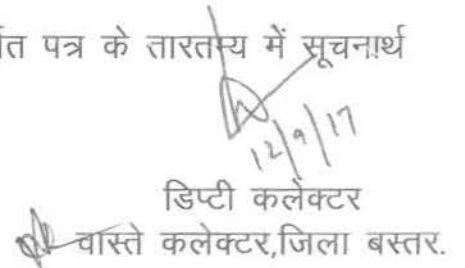 पत्र के तारतम्य में सूचनार्थ
12/9/17
डिप्टी कलेक्टर
वास्ते कलेक्टर,जिला बस्तर.